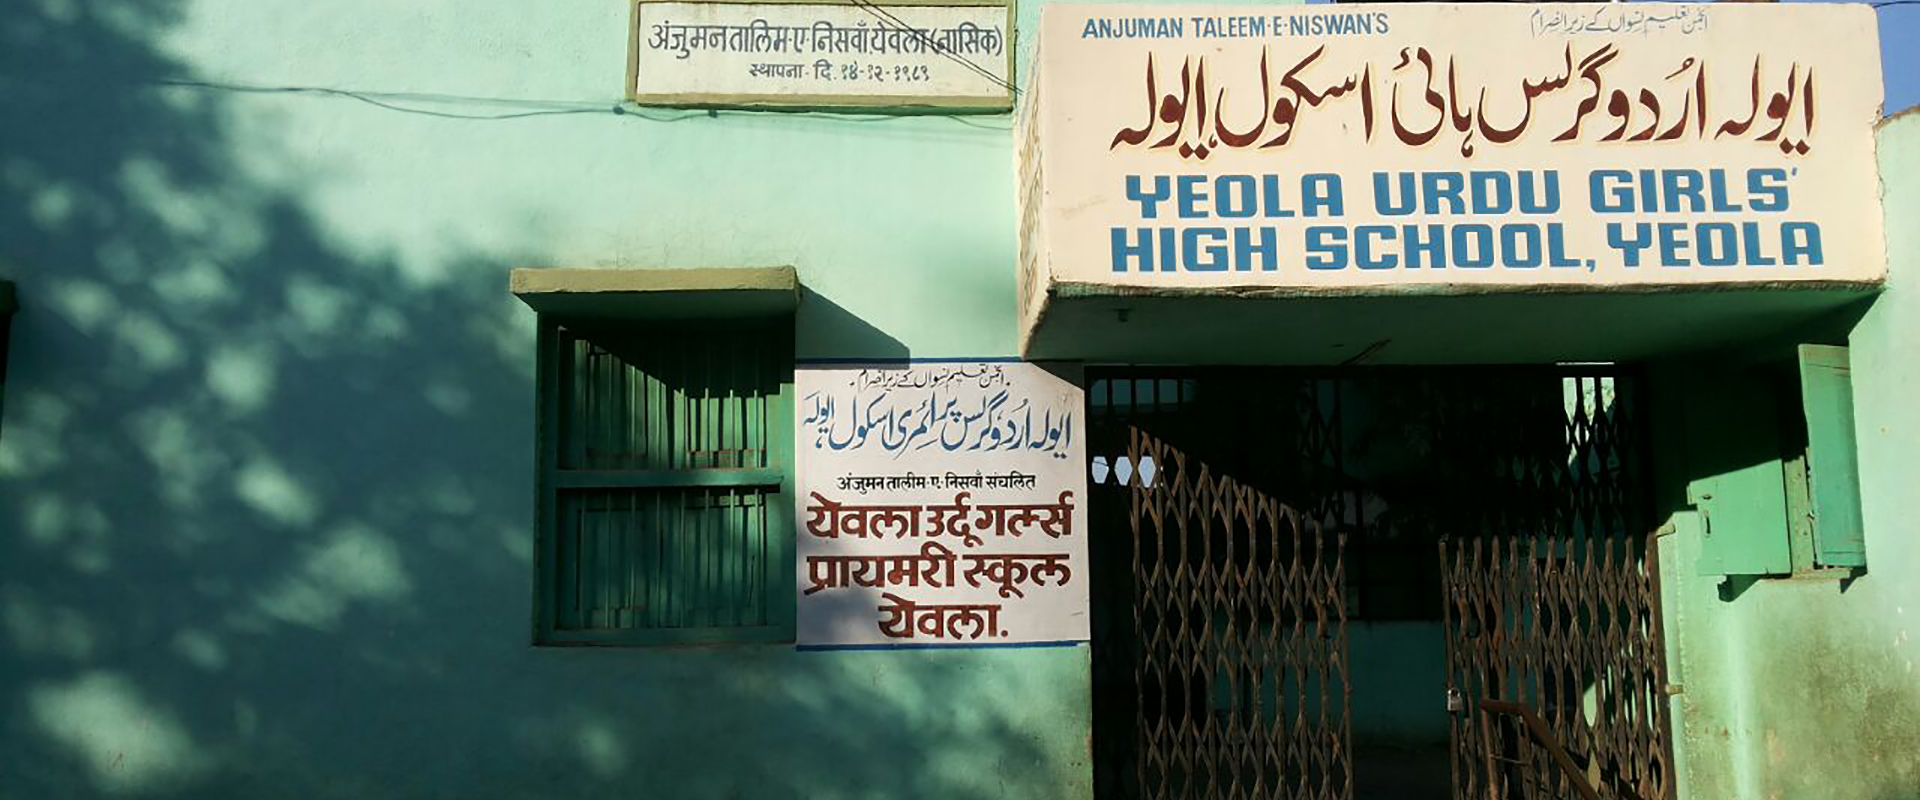 अंजुमन तालिम-ए-निसवाँ येवला (नासिक)
स्थापना- दि. १४-१२-१९८९
ANJUMAN TALEEM-E-NISWAN'S
انجمن تعلیم نسواں کے زیر انصرام
ایولہ اُردو گرلس ہائی اسکول، ایولہ
YEOLA URDU GIRLS'
HIGH SCHOOL, YEOLA
انجمن تعلیم نسواں کے زیر انصرام
ایولہ اُردو گرلس پرائمری اسکول ایولہ
अंजुमन तालीम-ए- निसवाँ संचलित
येवला उर्दू गर्ल्स
प्रायमरी स्कूल
येवला.